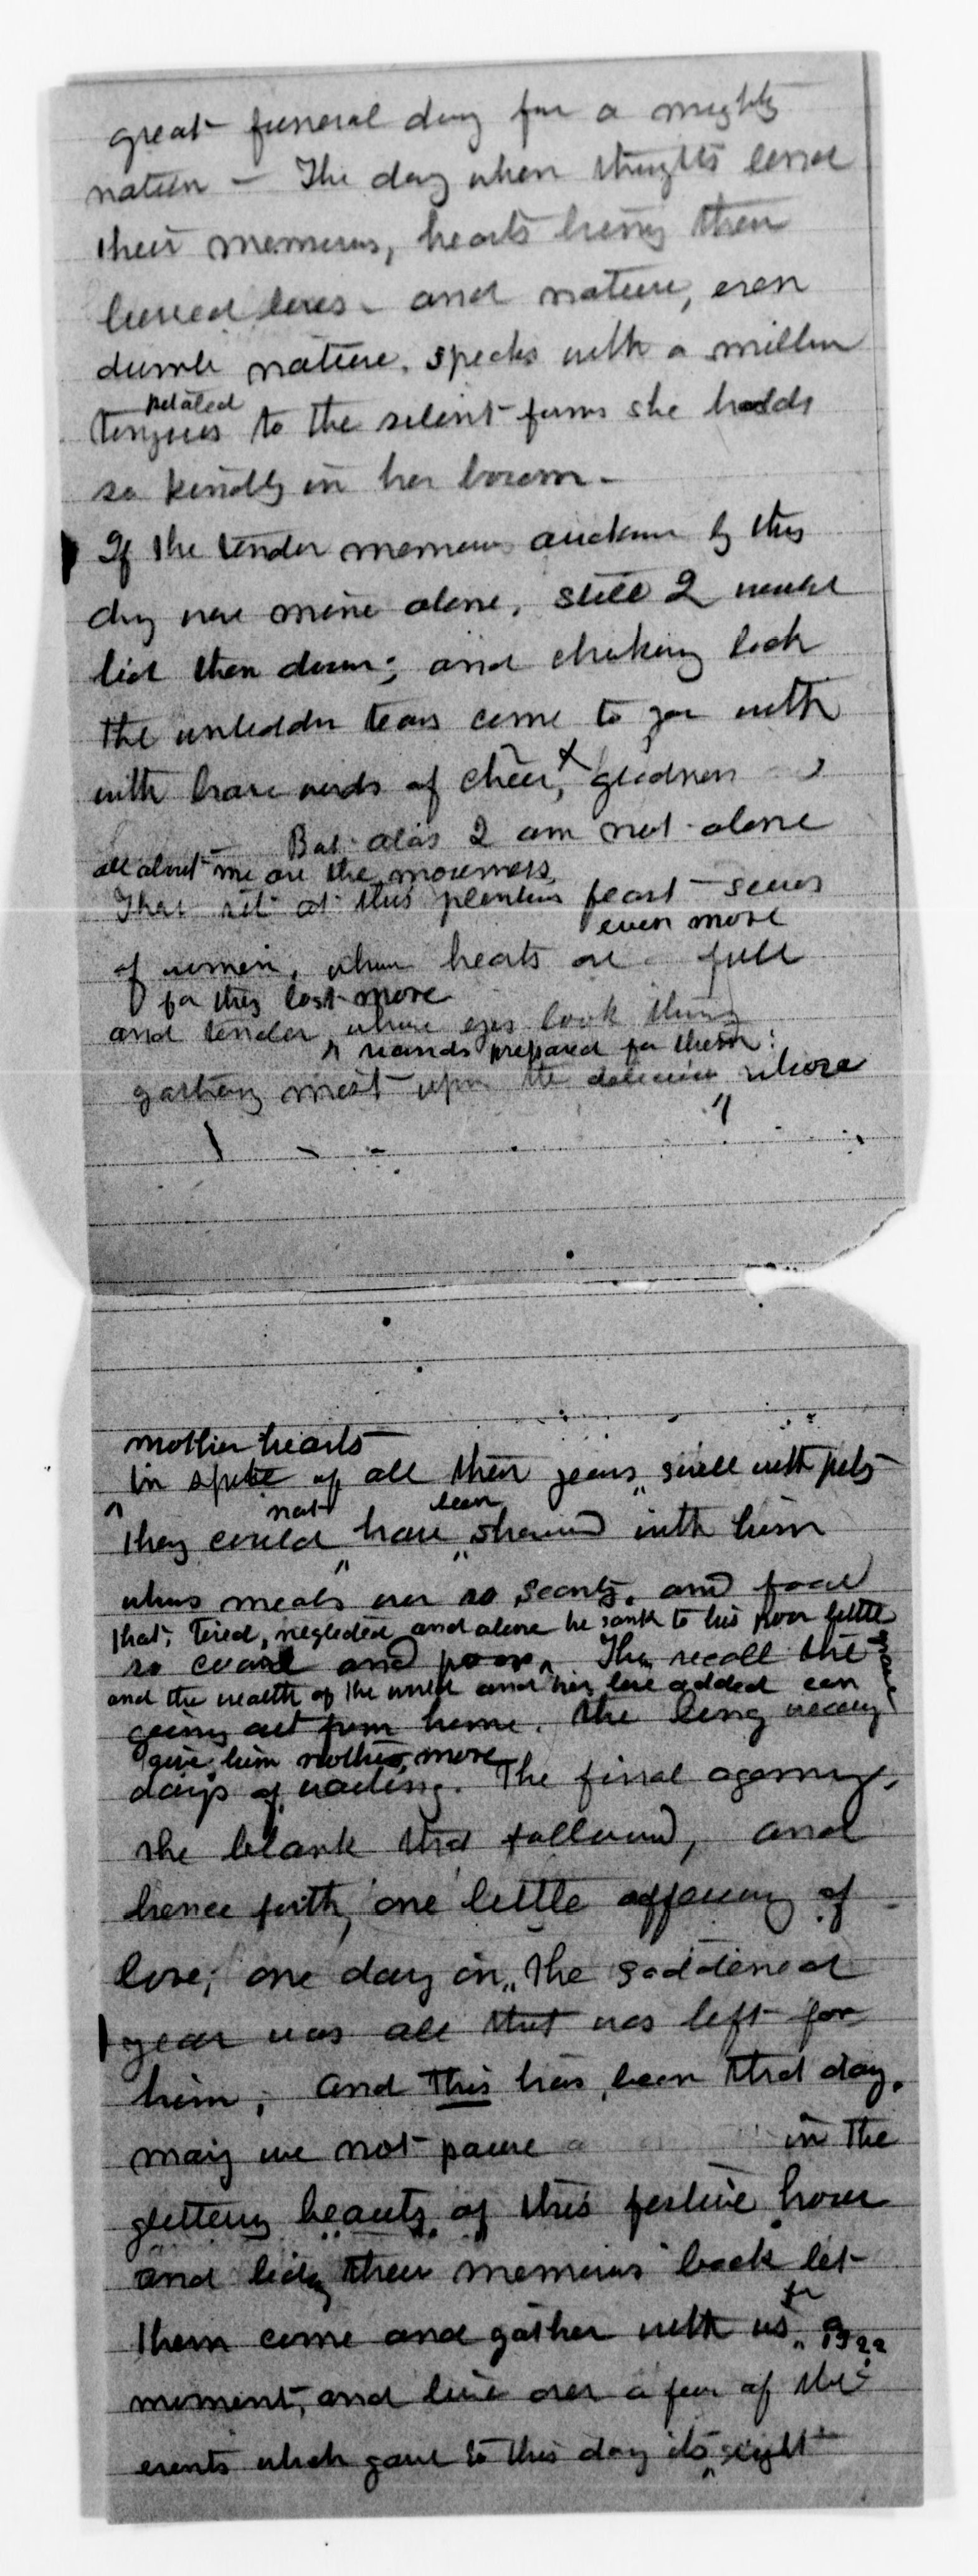 great funeral day for a mighty
nation — The day when thoughts lend
their memories, hearts bring their
buried loves - and nature, even
dumb nature, speaks with a million
petaled
tongues to the silent forms she holds
so kindly in her bosom -
If the tender memories awoken by this
day were mine alone, still I would
bid them down; and choking back
the unbidden tears come to you with
with brave words of cheer, & gladness
But alas I am not alone
all about me are the mourners
That sit at this plenteous feast
even more
of women, whose hearts are full
for they lost more
and tender whose eyes look thru
viands prepared for them;
gathering mist upon the delicious whose
mother hearts
in spite of all their years, swell with pity
not been
they could have shared with him
whos meals were so scanty, and food
that, tired, neglected and alone he sank to his poor little
so coarse and poor, They recall the
and the wealth of the world and her love added can
going out from home. The long weary
give him nothing more
days of waiting. The final agony,
the blank that followed, and
hence forth, one little offering of
love; one day in the saddened
year was all that was left for
him; And This has been that day.
may we not pause in the
glittering beauty of this festive hour
and biding their memories back let
them come and gather with us for a
moment, and live over a few of the
events which gave to this day its right